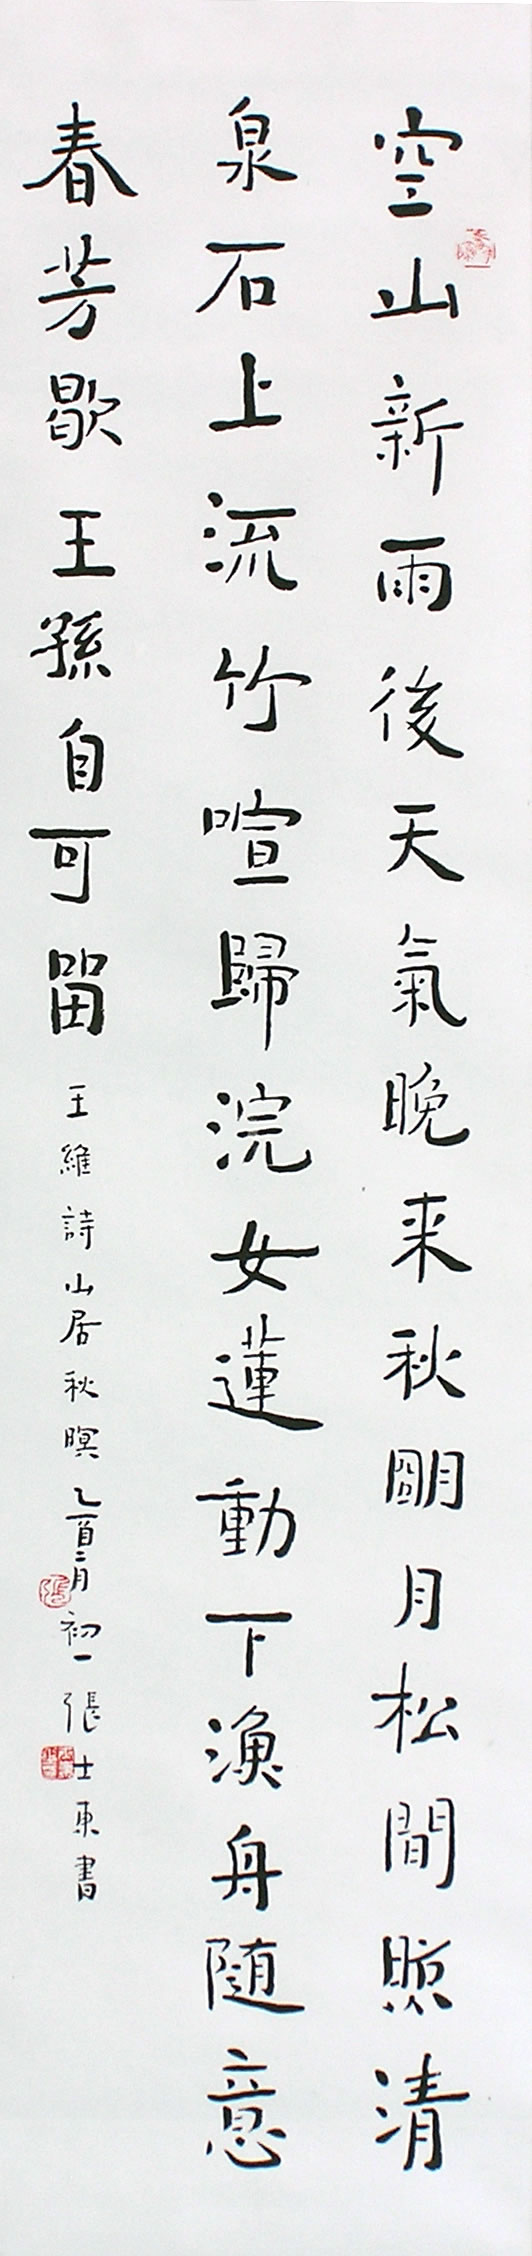 空山新雨後天氣晚来秋明月松間照清
泉石上流竹喧歸浣女蓮動下漁舟随意
春芳歇王孫自可留王維詩山居秋暝乙酉二月初一張士東書